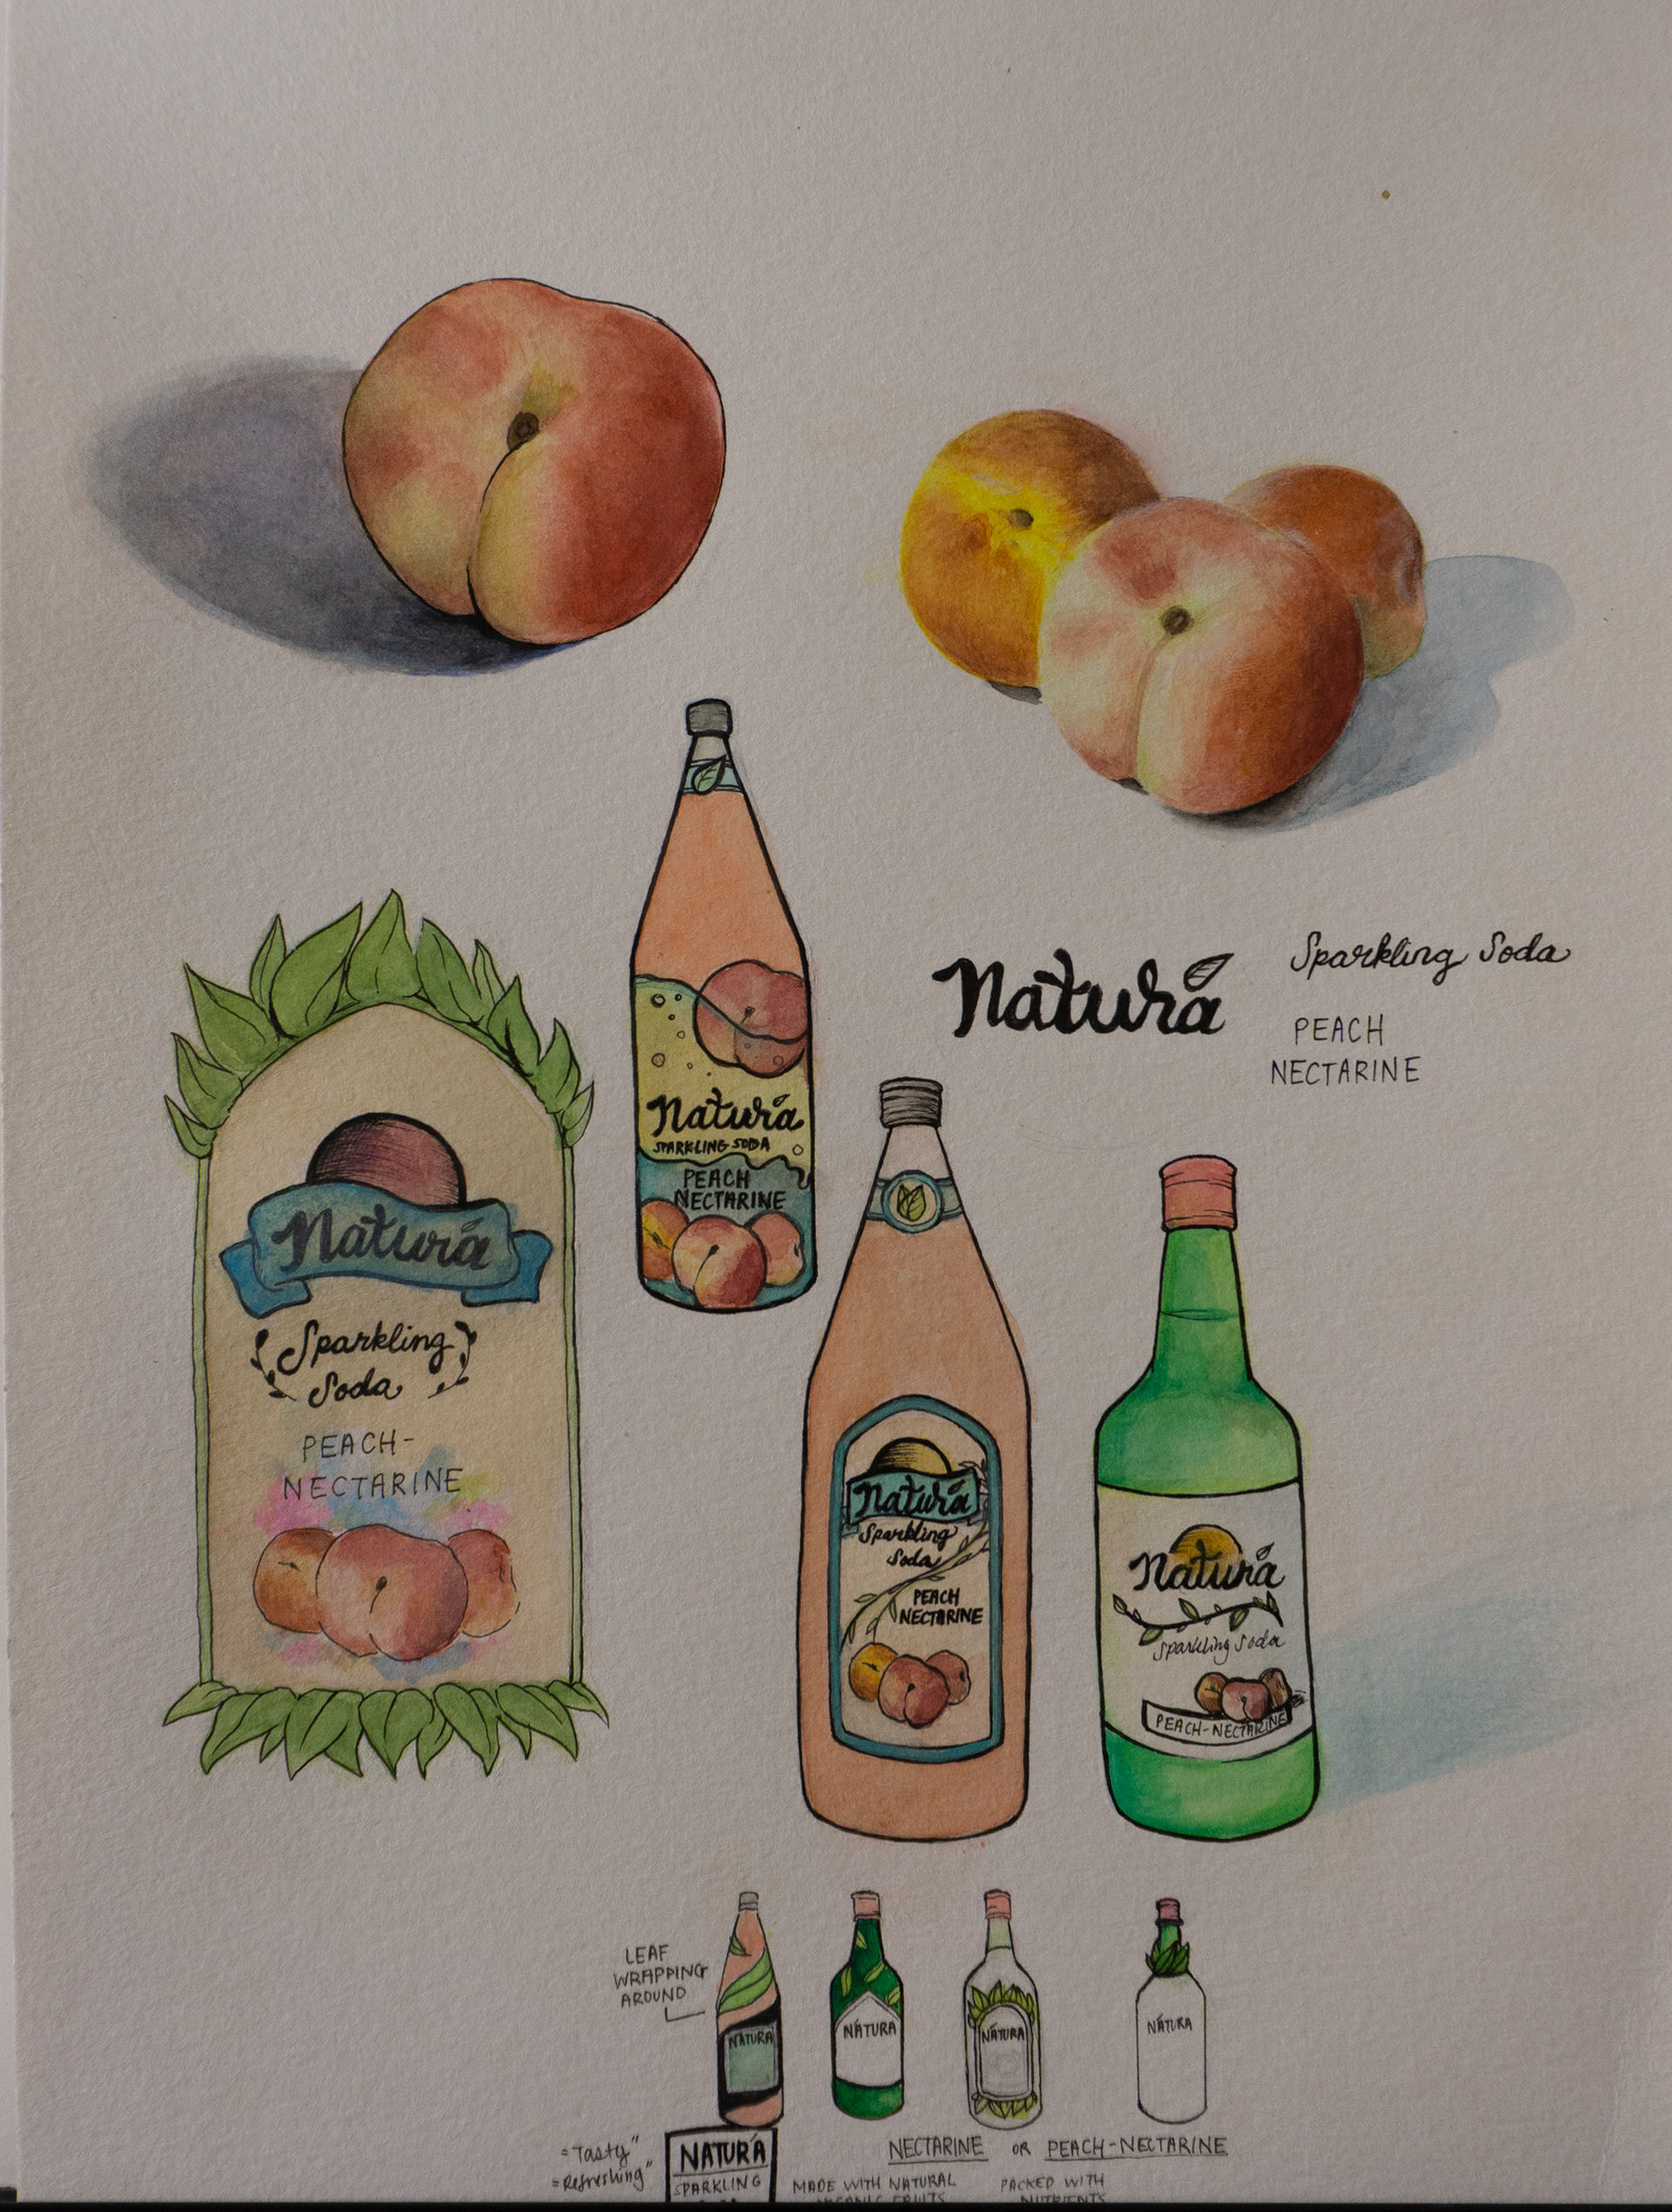 Naturá
Sparkling Soda
PEACH
NECTARINE
Naturá
SPARKLING SODA
PEACH
NECTARINE
Naturá
Sparkling
Soda
PEACH-
NECTARINE
Naturá
Sparkling
Soda
PEACH
NECTARINE
Naturá
Sparkling Soda
PEACH-NECTARINE
LEAF
WRAPPING
AROUND
NATURÁ
NÁTURA
NÁTURA
NÁTURA
="Tasty"
=Refreshing"
NATUR'A
SPARKLING
NECTARINE OR PEACH-NECTARINE
MADE WITH NATURAL
ORGANIC FRUITS
PACKED WITH
NUTRIENTS